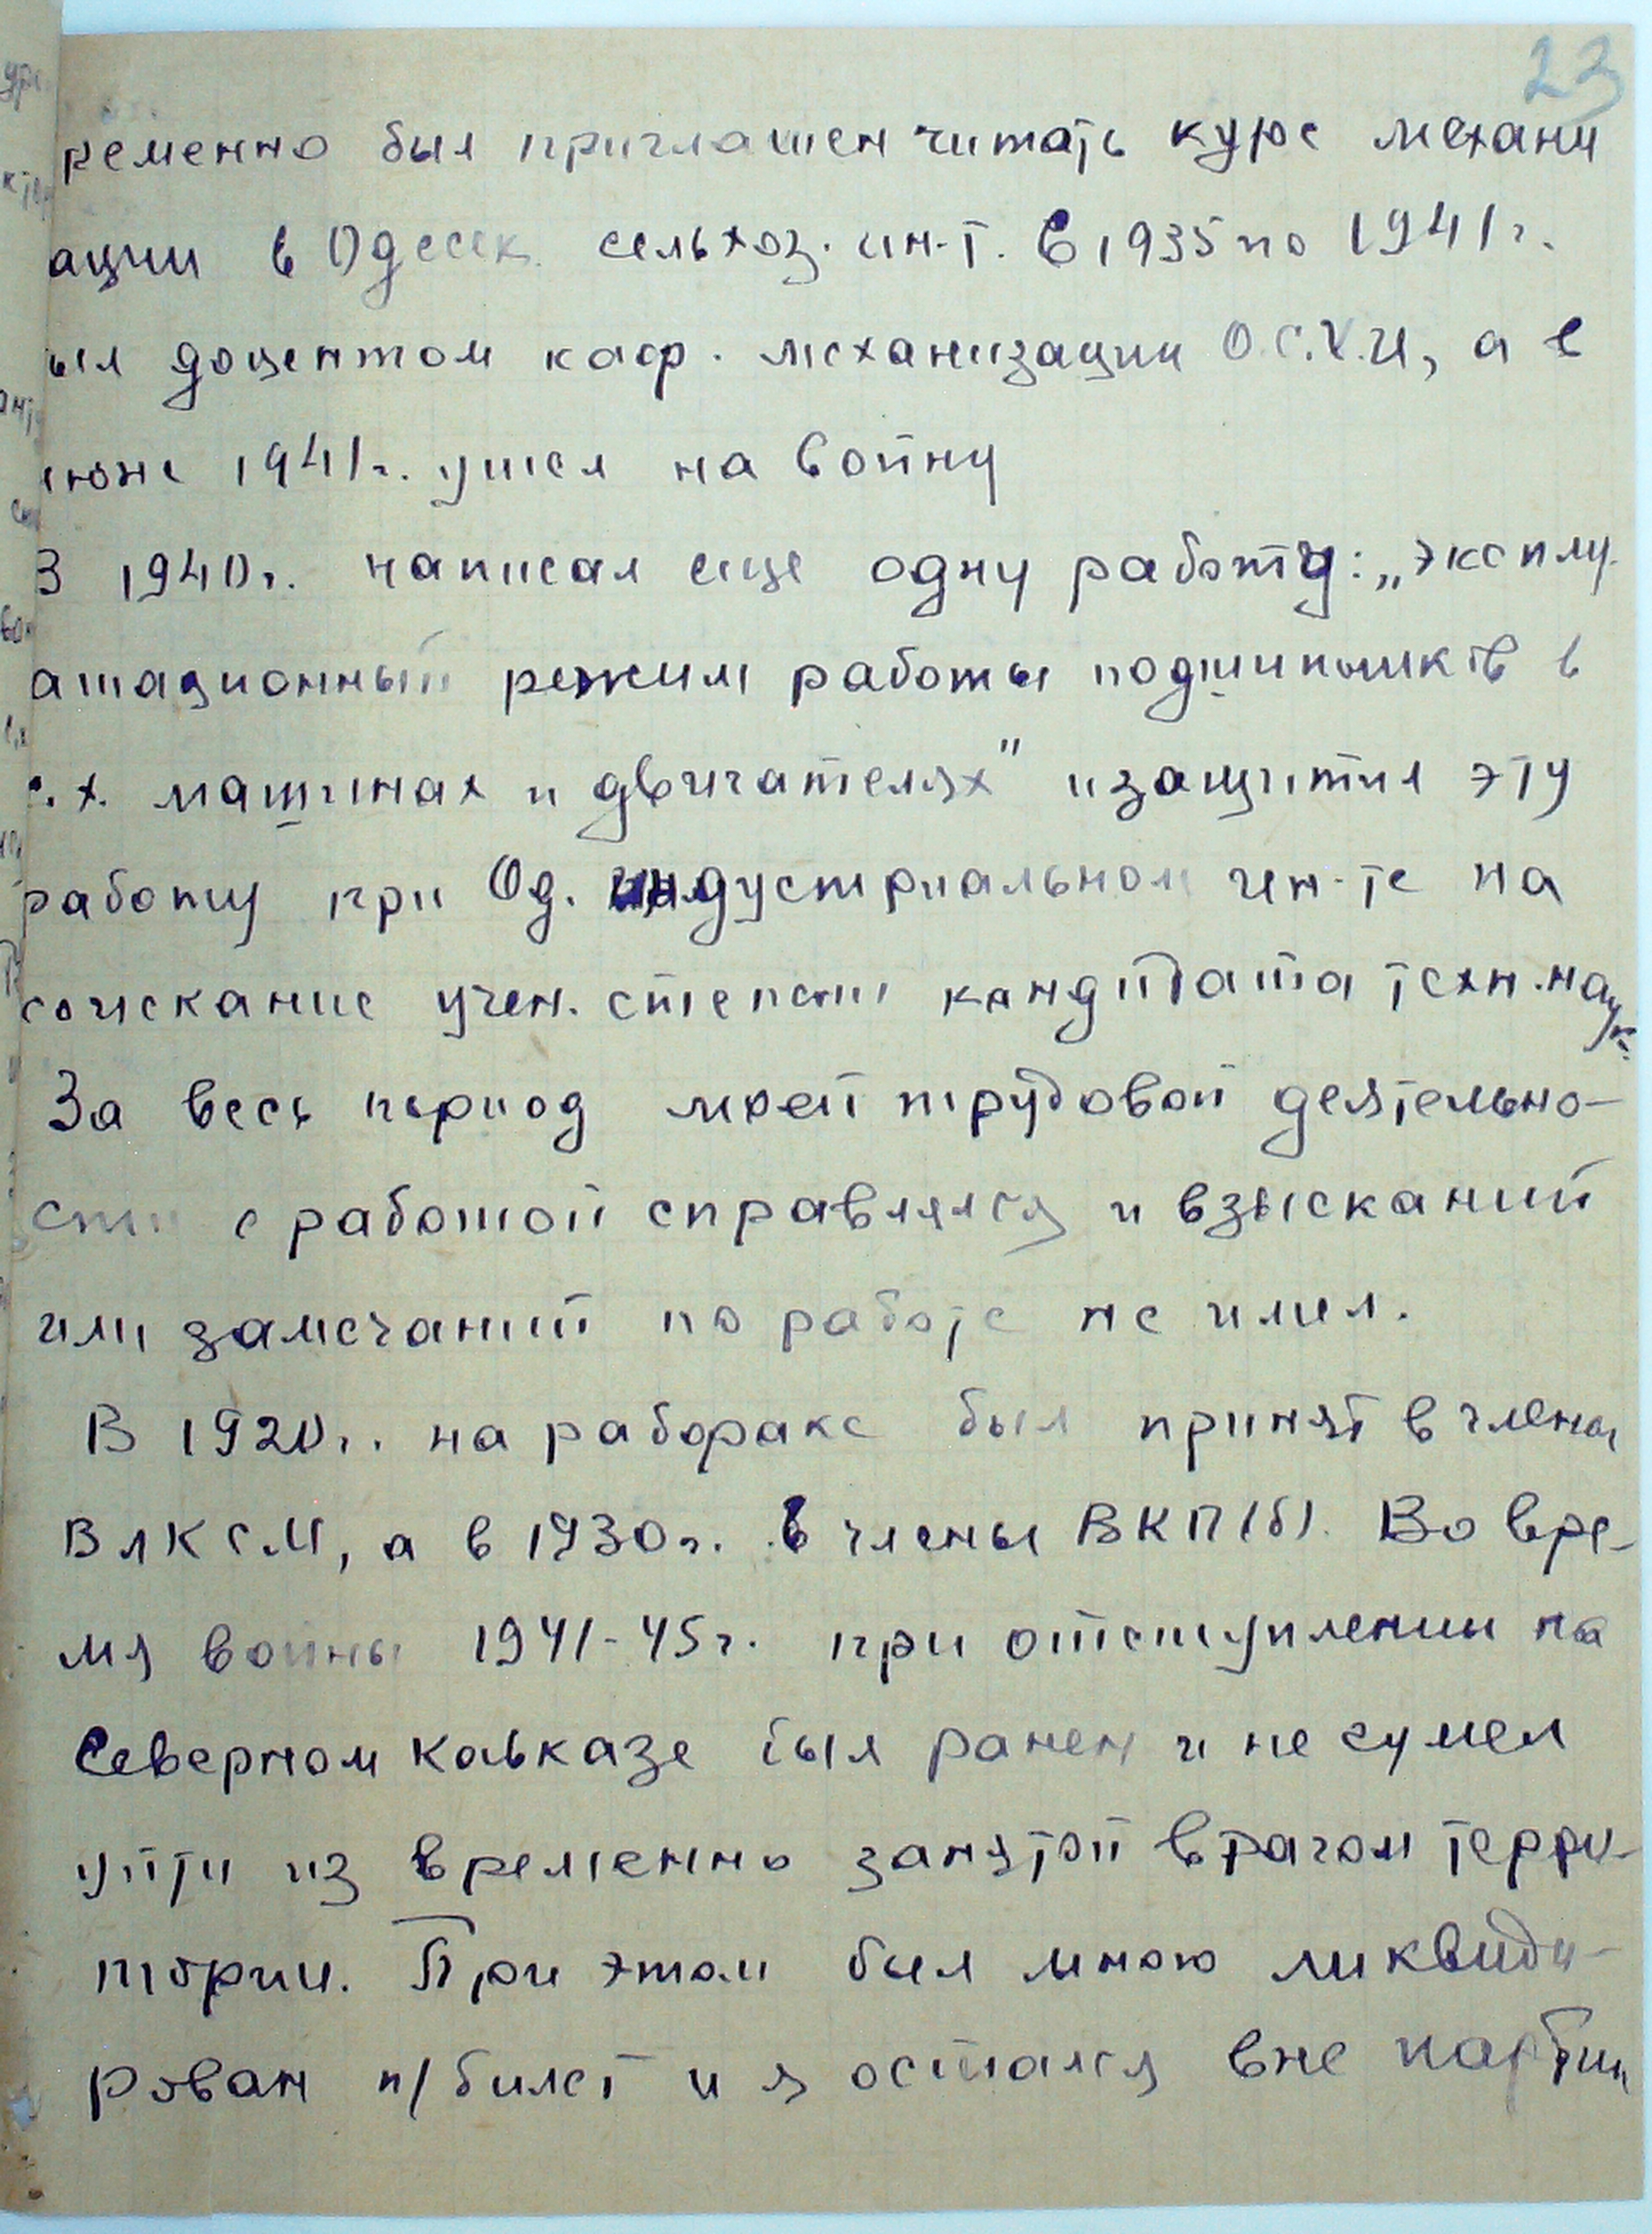 23
ременно был приглашен читать курс механи
ации в Одесск. сельхоз. ин-т. С 1935 по 1941 г.
ыл доцентом каф. механизации О.С.Х.И, а в
июне 1941 г. ушел на войну
В 1940 г. написал еще одну работу: „Эксплу-
атационный режим работы подшипников в
с. х. машинах и двигателях" и защитил эту
работу при Од. индустриальном ин-те на
соискание учен. степени кандидата техн. наук.
За весь период моей трудовой деятельно-
сти с работой справлялся и взысканий
или замечаний по работе не имел.
В 1920 г. на рабфаке был принят в члены
ВЛКСМ, а в 1930 г. в члены ВКП(б). Во вре-
мя войны 1941-45 г. при отступлении на
Северном Кавказе был ранен и не сумел
уйти из временно занятой врагом терри-
тории. При этом был мною ликвиди-
рован п/билет и я остался вне партии